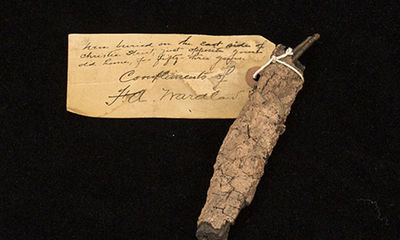 buried on the east side of
Christie Street, just opposite your
old home, for fifty three years.
Compliments of
F. A. Wardlaw